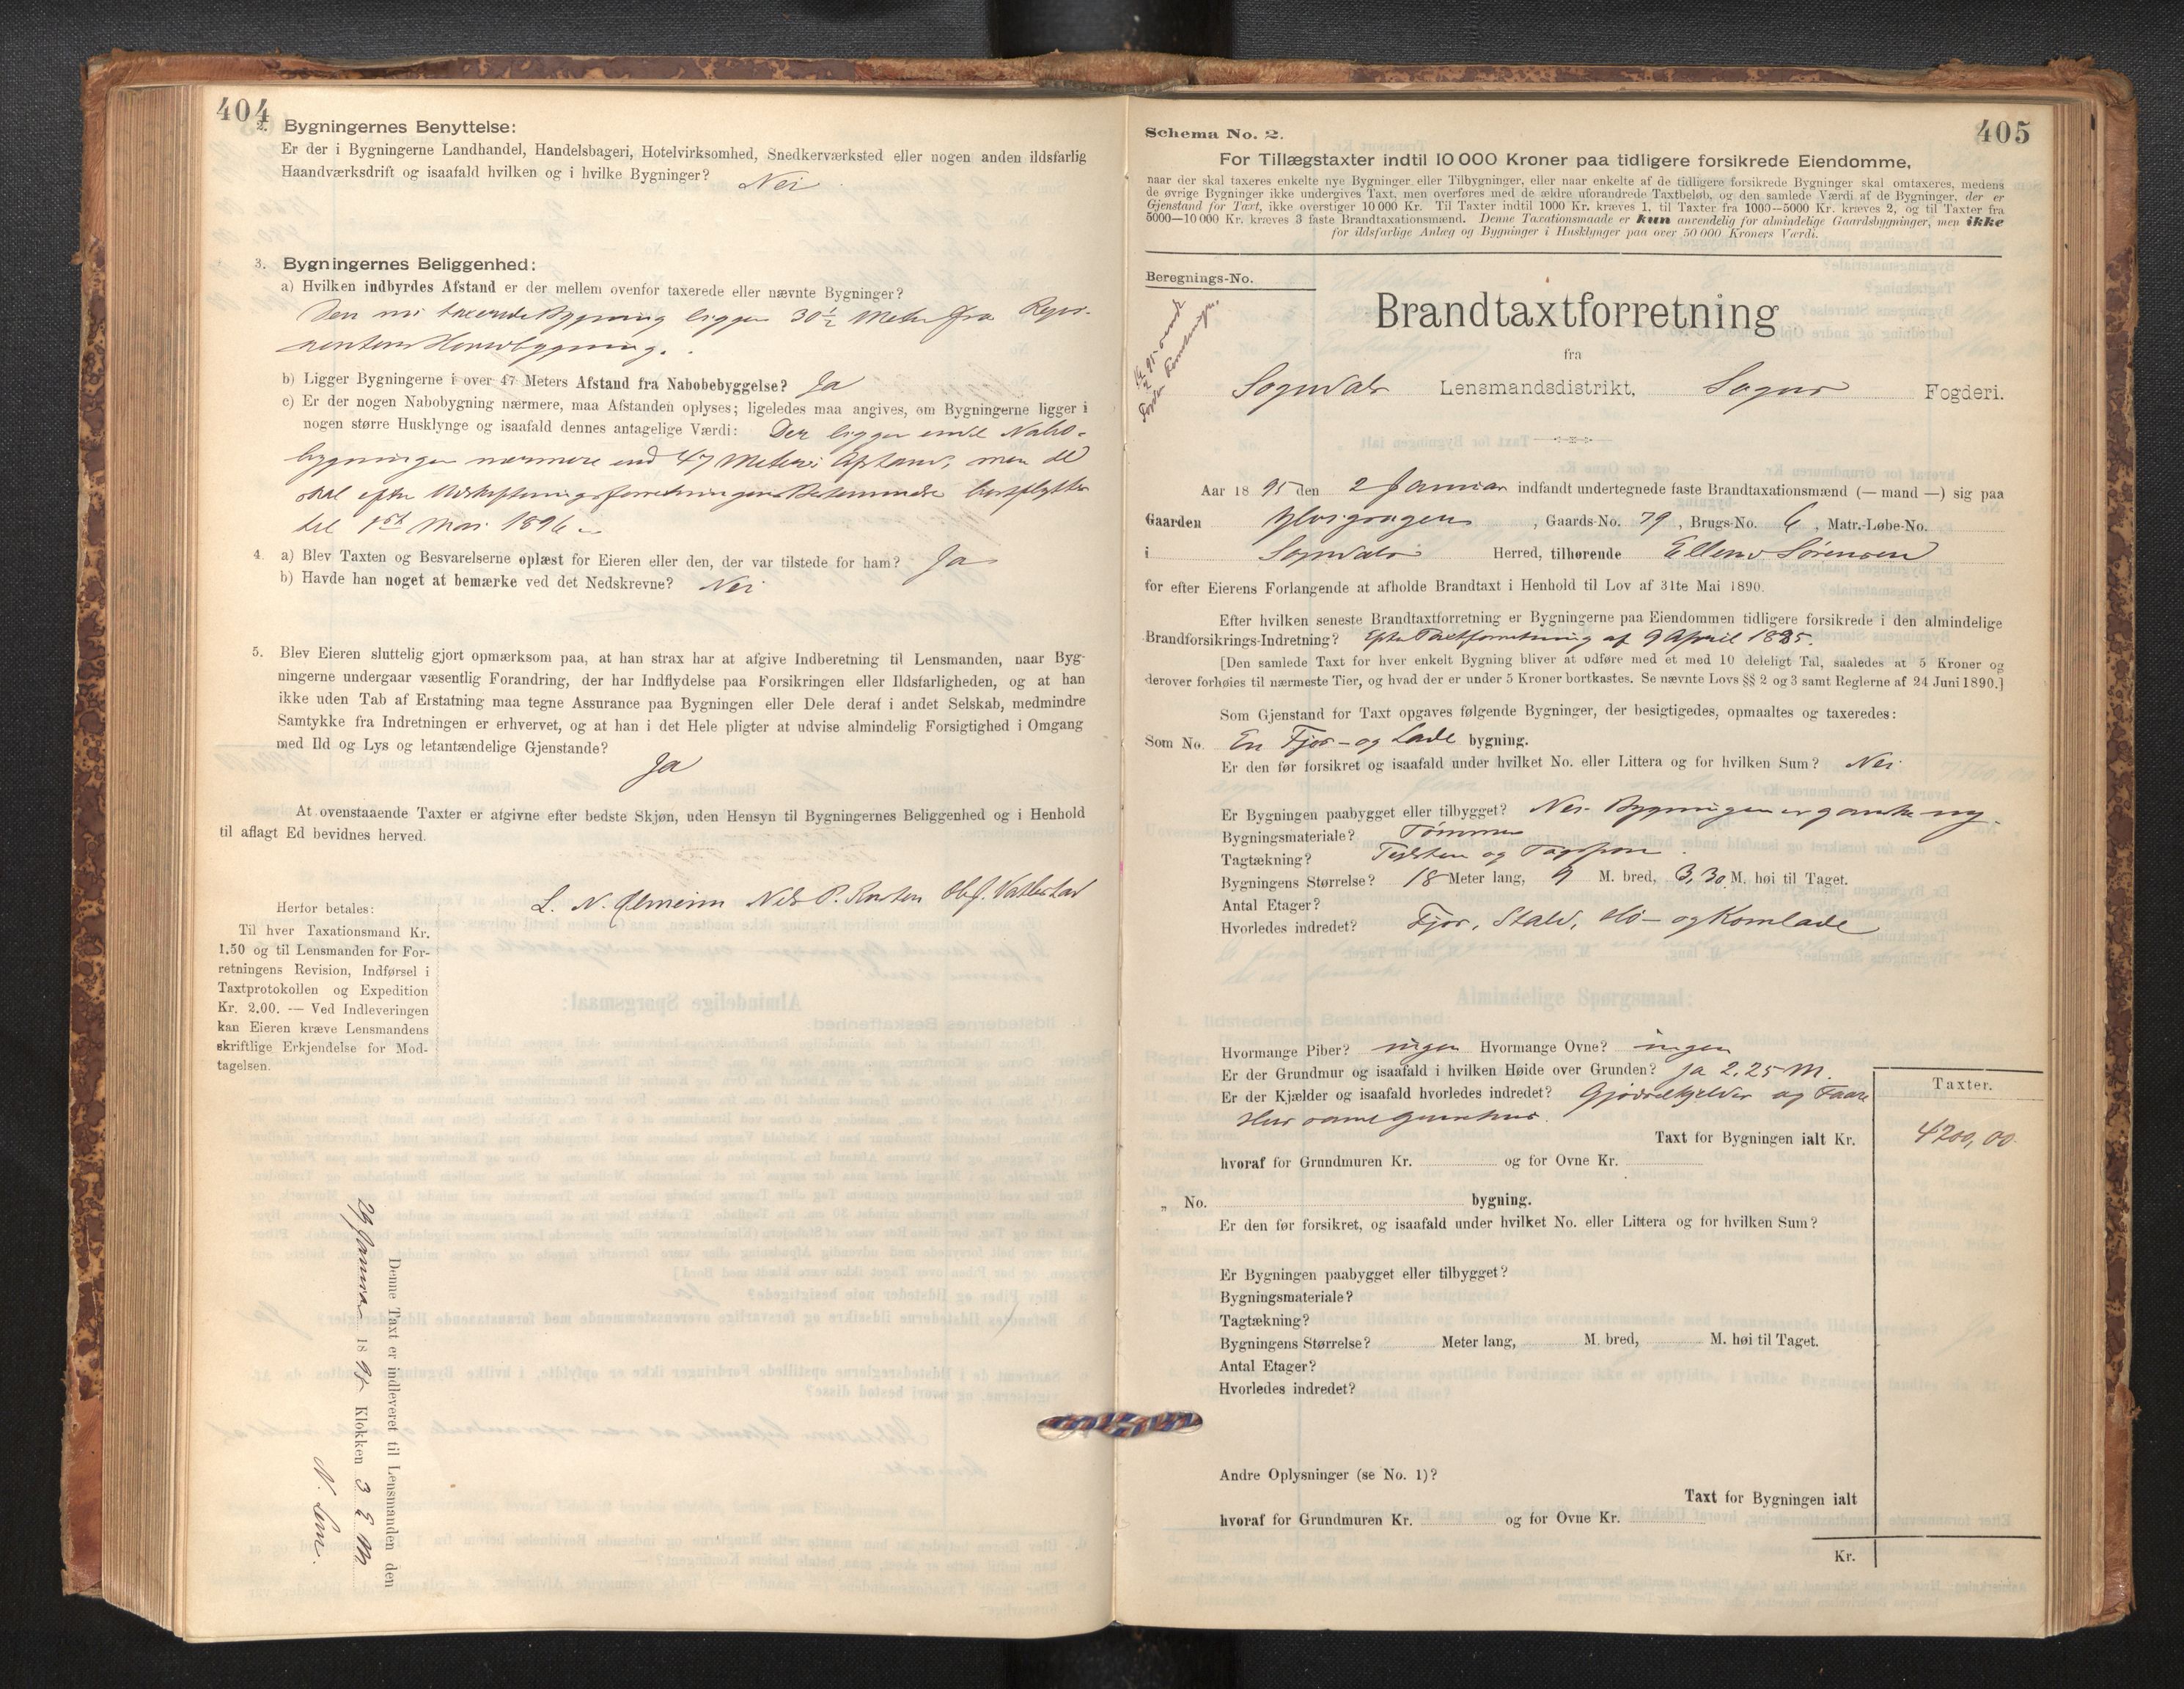 404
2. Bygningernes Benyttelse:
Er der i Bygningerne Landhandel, Handelsbageri, Hotelvirksomhed, Snedkerværksted eller nogen anden ildsfarlig
Haandværksdrift og isaafald hvilken og i hvilke Bygninger? Nei
3. Bygningernes Beliggenhed:
a) Hvilken indbyrdes Afstand er der mellem ovenfor taxerede eller nævnte Bygninger?
Den nu taxerede Bygning ligger 30 1/2 Meter fra
b) Ligger Bygningerne i over 47 Meters Afstand fra Nabobebyggelse? Ja
c) Er der nogen Nabobygning nærmere, maa Afstanden oplyses; ligeledes maa angives, om Bygningerne ligger i
nogen større Husklynge og isaafald dennes antagelige Værdi: Der ligger Nabo-
bygninger nærmere end 47 Meters Afstand, men de
skal efter Udskiftningsforretningens Bestemmelse bortflyttes
til 1st Mai 1896.
4. a) Blev Taxten og Besvarelserne oplæst for Eieren eller den, der var tilstede for ham? Ja
b) Havde han noget at bemærke ved det Nedskrevne? Nei
5. Blev Eieren sluttelig gjort opmærksom paa, at han strax har at afgive Indberetning til Lensmanden, naar Byg-
ningerne undergaar væsentlig Forandring, der har Indflydelse paa Forsikringen eller Ildsfarligheden, og at han
ikke uden Tab af Erstatning maa tegne Assurance paa Bygningen eller Dele deraf i andet Selskab, medmindre
Samtykke fra Indretningen er erhvervet, og at han i det Hele pligter at udvise almindelig Forsigtighed i Omgang
med Ild og Lys og letantændelige Gjenstande?
Ja
At ovenstaaende Taxter er afgivne efter bedste Skjøn, uden Hensyn til Bygningernes Beliggenhed og i Henhold
til aflagt Ed bevidnes herved.
L. N. Nels P.
Herfor betales:
Til hver Taxationsmand Kr.
1.50 og til Lensmanden for For-
retningens Revision, Indførsel i
Taxtprotokollen og Expedition
Kr. 2.00. — Ved Indleveringen
kan Eieren kræve Lensmandens
skriftlige Erkjendelse for Mod-
tagelsen.
Denne Taxt er indleveret til Lensmanden den
29 Januar 1895 Klokken 3 E M
405
Schema No. 2.
For Tillægstaxter indtil 10 000 Kroner paa tidligere forsikrede Eiendomme,
naar der skal taxeres enkelte nye Bygninger eller Tilbygninger, eller naar enkelte af de tidligere forsikrede Bygninger skal omtaxeres, medens
de øvrige Bygninger ikke undergives Taxt, men overføres med de ældre uforandrede Taxtbeløb, og den samlede Værdi af de Bygninger, der er
Gjenstand for Taxt, ikke overstiger 10 000 Kr. Til Taxter indtil 1000 Kr. kræves 1, til Taxter fra 1000—5000 Kr. kræves 2, og til Taxter fra
5000—10 000 Kr. kræves 3 faste Brandtaxationsmænd. Denne Taxationsmaade er kun anvendelig for almindelige Gaardsbygninger, men ikke
for ildsfarlige Anlæg og Bygninger i Husklynger paa over 50 000 Kroners Værdi.
Beregnings-No.
Brandtaxtforretning
fra
Sogndals Lensmandsdistrikt, Sogns Fogderi.
Aar 1895 den 2 Januar indfandt undertegnede faste Brandtaxationsmænd (— mand —) sig paa
Gaarden , Gaards-No. 79, Brugs-No. 6, Matr.-Løbe-No.
i Sogndals Herred, tilhørende Ellend Sørensen
for efter Eierens Forlangende at afholde Brandtaxt i Henhold til Lov af 31te Mai 1890.
Efter hvilken seneste Brandtaxtforretning er Bygningerne paa Eiendommen tidligere forsikrede i den almindelige
Brandforsikrings-Indretning? Efter Taxtforretning af 9 April 1885.
[Den samlede Taxt for hver enkelt Bygning bliver at udføre med et med 10 deleligt Tal, saaledes at 5 Kroner og
derover forhøies til nærmeste Tier, og hvad der er under 5 Kroner bortkastes. Se nævnte Lovs §§ 2 og 3 samt Reglerne af 24 Juni 1890.]
Som Gjenstand for Taxt opgaves følgende Bygninger, der besigtigedes, opmaaltes og taxeredes:
Som No. En Fjøs- og Lade bygning.
Er den før forsikret og isaafald under hvilket No. eller Littera og for hvilken Sum? Nei
Er Bygningen paabygget eller tilbygget? Nei. Bygningen er ganske ny.
Bygningsmateriale? Tømmer
Tagtækning? Teglsten og Tagspon
Bygningens Størrelse? 18 Meter lang, 9 M. bred, 3,30 M. høi til Taget.
Antal Etager?
Hvorledes indredet? Fjøs, Stald, Hø- og Kornlade
Hvormange Piber? ingen Hvormange Ovne? ingen
Er der Grundmur og isaafald i hvilken Høide over Grunden? Ja 2,25 M.
Er der Kjælder og isaafald hvorledes indredet? Gjødselkjelder og Faare
Hus samt
Taxter.
Taxt for Bygningen ialt Kr. 4200,00
hvoraf for Grundmuren Kr. og for Ovne Kr.
„ No. bygning.
Er den før forsikret, og isaafald under hvilket No. eller Littera og for hvilken Sum?
Er Bygningen paabygget eller tilbygget?
Bygningsmateriale?
Tagtækning?
Bygningens Størrelse? Meter lang, M. bred, M. høi til Taget.
Antal Etager?
Hvorledes indredet?
Andre Oplysninger (se No. 1)?
Taxt for Bygningen ialt
hvoraf for Grundmuren Kr. og for Ovne Kr.
Kr.